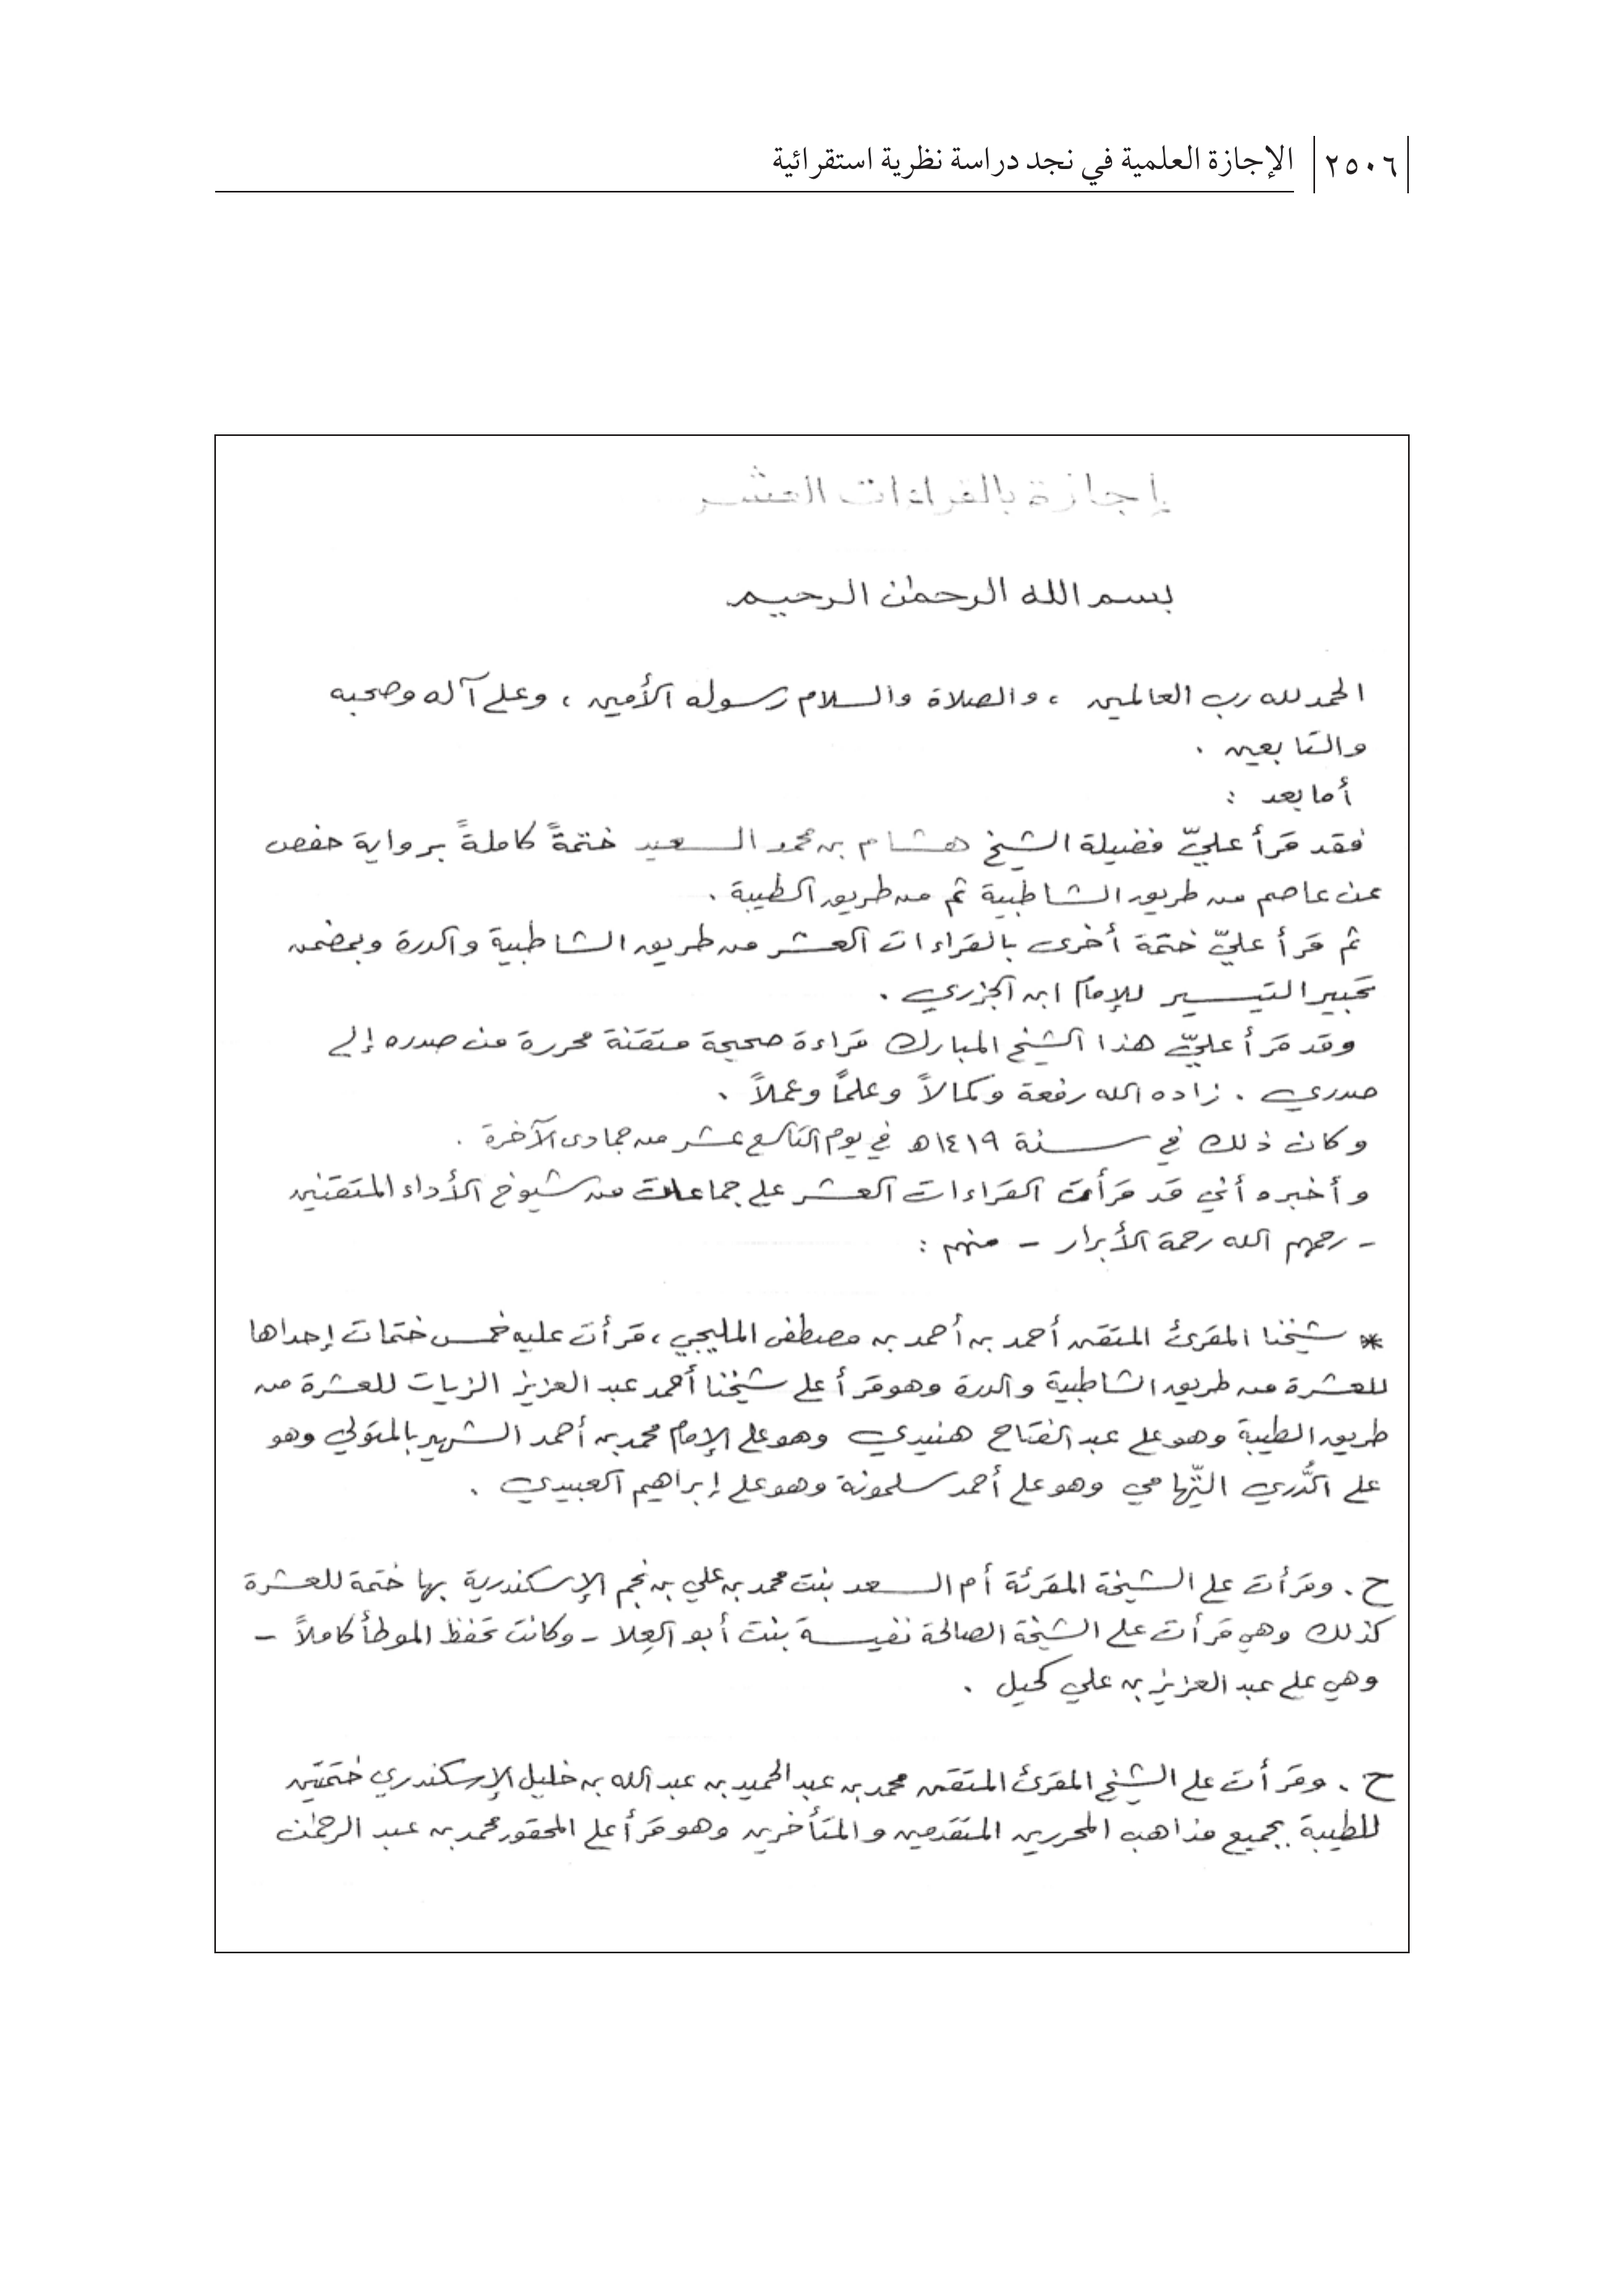 ٢٥٠٦ الإجازة العلمية في نجد دراسة نظرية استقرائية
إجازة بالقراءات العشر
بسم الله الرحمٰن الرحيم
الحمد لله رب العالمين ، والصلاة والسلام رسوله الأمين ، وعلى آله وصحبه
والتابعين .
أما بعد :
فقد قرأ عليّ فضيلة الشيخ هشام بن محمد السعيد ختمةً كاملةً برواية حفص
عن عاصم من طريق الشاطبية ثم من طريق الطيبة .
ثم قرأ عليّ ختمة أخرى بالقراءات العشر من طريق الشاطبية والدرة وبمضمن
تحبير التيسير للإمام ابن الجزري .
وقد قرأ عليّ هذا الشيخ المبارك قراءة صحيحة متقنة محررة من صدره إلى
صدري . زاده الله رفعة وكمالاً وعلماً وعملاً .
وكان ذلك في سنة ١٤١٩هـ في يوم التاسع عشر من جمادى الآخرة .
وأخبره أني قد قرأت القراءات العشر على جماعات من شيوخ الأداء المتقنين
- رحمهم الله رحمة الأبرار - منهم :
* شيخنا المقرئ المتقن أحمد بن أحمد بن مصطفى المليجي ، قرأت عليه خمس ختمات إحداها
للعشرة من طريق الشاطبية والدرة وهو قرأ على شيخنا أحمد عبد العزيز الزيات للعشرة من
طريق الطيبة وهو على عبد الفتاح هنيدي وهو على الإمام محمد بن أحمد الشهير بالمتولي وهو
على الدُّري التِّهامي وهو على أحمد سلمونة وهو على إبراهيم العبيدي .
ح . وقرأت على الشيخة المقرئة أم السعد بنت محمد بن علي بن نجم الإسكندرية بها ختمة للعشرة
كذلك وهي قرأت على الشيخة الصالحة نفيسة بنت أبو العِلا - وكانت تحفظ الموطأ كاملاً -
وهي على عبد العزيز بن علي كحيل .
ح . وقرأت على الشيخ المقرئ المتقن محمد بن عبد الحميد بن عبد الله بن خليل الإسكندري ختمتين
للطيبة بجميع مذاهب المحررين المتقدمين والمتأخرين وهو قرأ على المحقور محمد بن عبد الرحمٰن